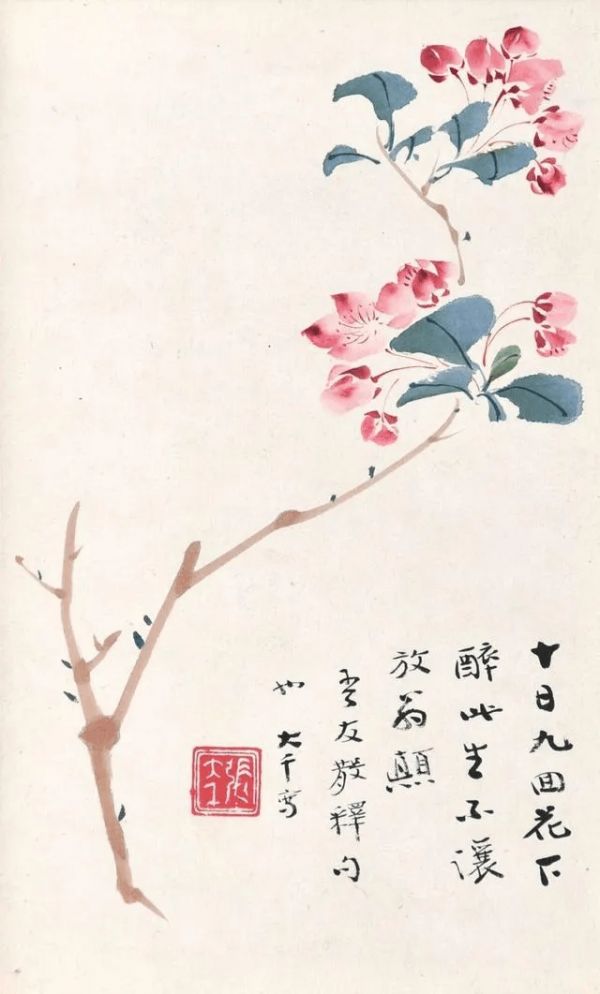 十日九回花下
醉此生不讓
放翁顛
友散釋句
也 大千寫